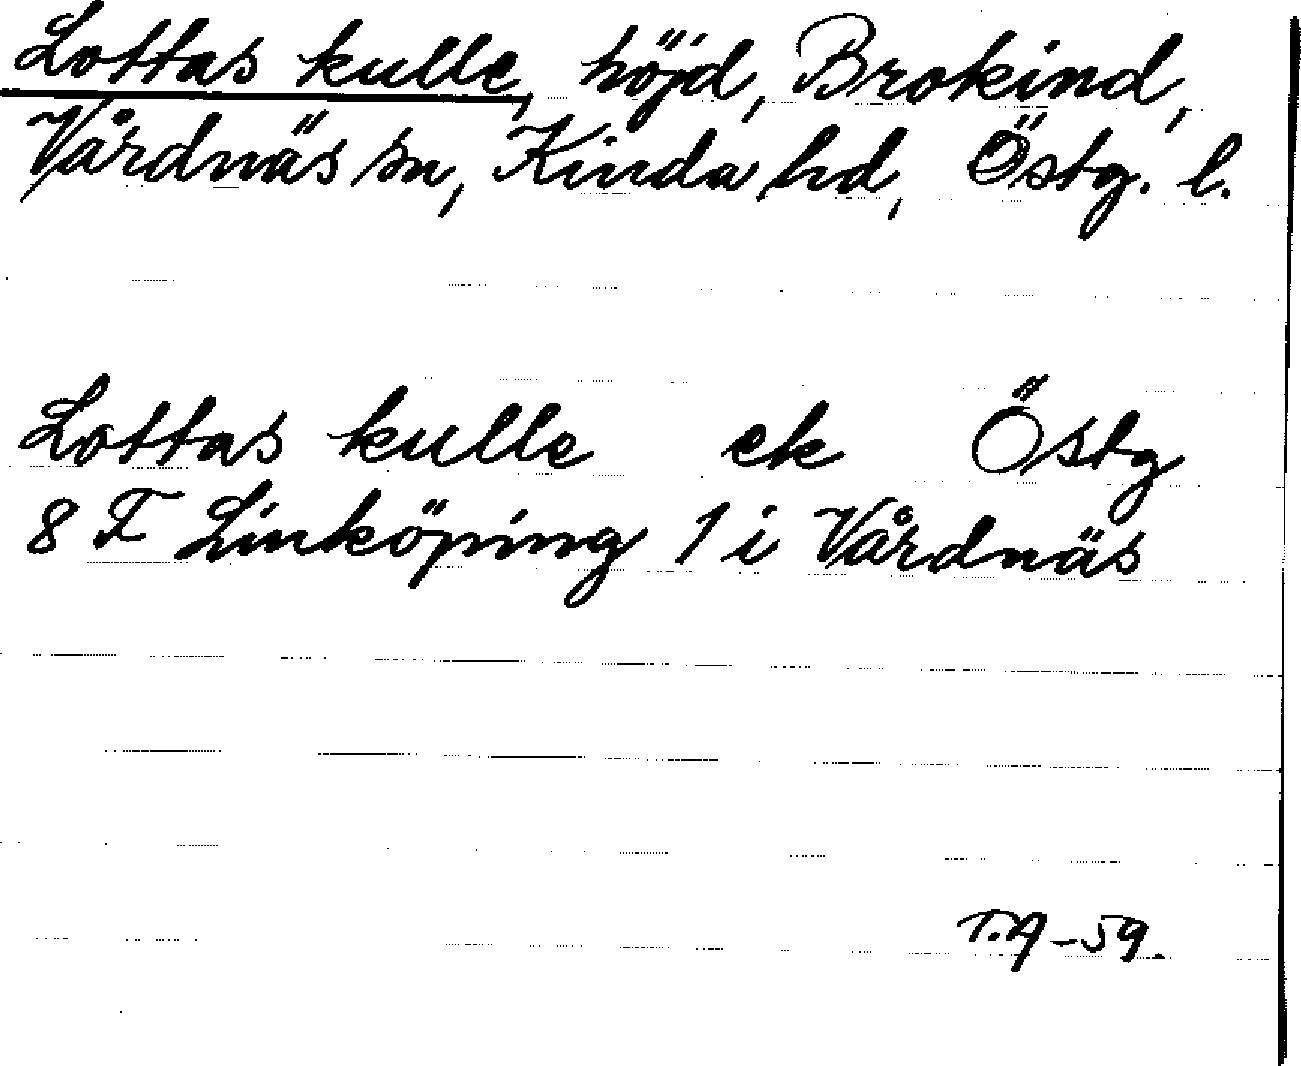 Lottas kulle, höjd, Brokind,
Vårdnäs sn, Kinda hd, Östg. l.
Lottas kulle ek Östg
8 F Linköping 1 i Vårdnäs
T.A-59.